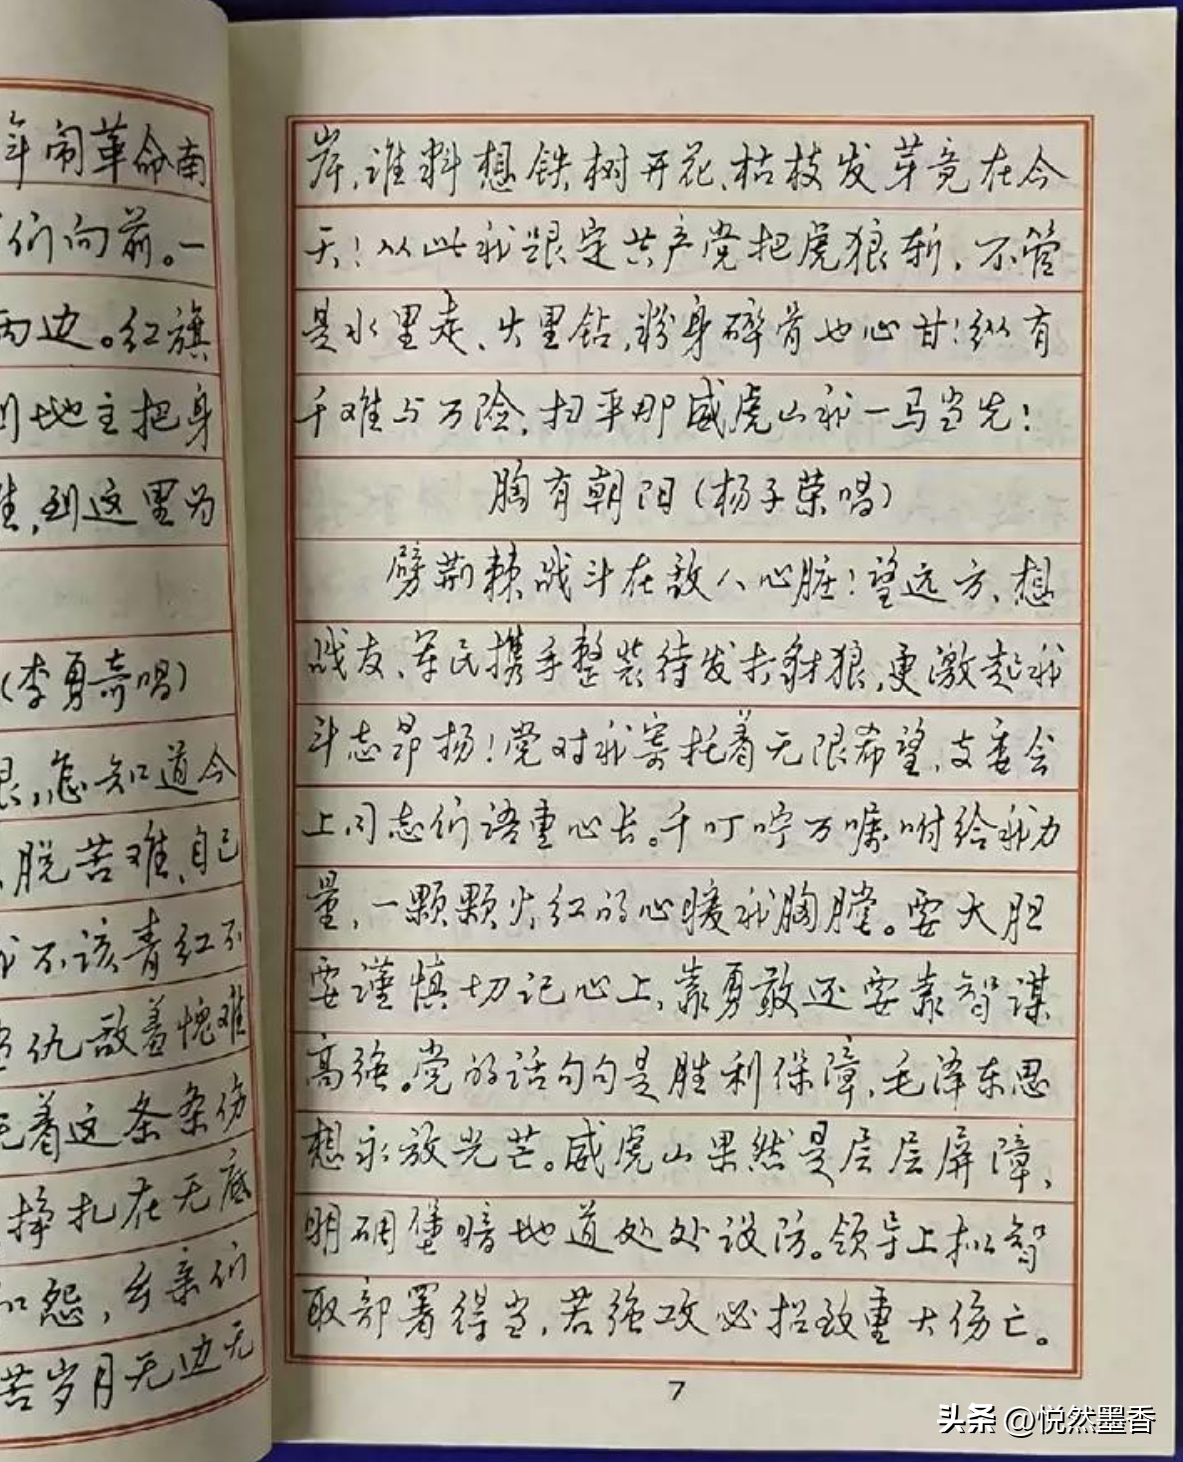 年闹革命南
们向前。一
两边。红旗
到地主把身
,到这里为
(李勇奇唱)
恨,怎知道今
脱苦难、自己
我不该青红不
仇敌羞愧难
着这条条伤
挣扎在无底
和怨,乡亲们
苦岁月无边无
岸,谁料想铁树开花、枯枝发芽竟在今
天!从此我跟定共产党把虎狼斩,不管
是水里走、火里钻,粉身碎骨也心甘!纵有
千难与万险,扫平那威虎山我一马当先!
胸有朝阳(杨子荣唱)
劈荆棘战斗在敌人心脏!望远方、想
战友、军民携手整装待发打豺狼,更激起我
斗志昂扬!党对我寄托着无限希望,支委会
上同志们语重心长。千叮咛万嘱咐给我力
量,一颗颗火红的心暖我胸膛。要大胆
要谨慎切记心上,靠勇敢还要靠智谋
高强。党的话句句是胜利保障,毛泽东思
想永放光芒。威虎山果然是层层屏障,
明碉堡暗地道处处设防。领导上拟智
取部署得当,若强攻必招致重大伤亡。
7
头条 @悦然墨香